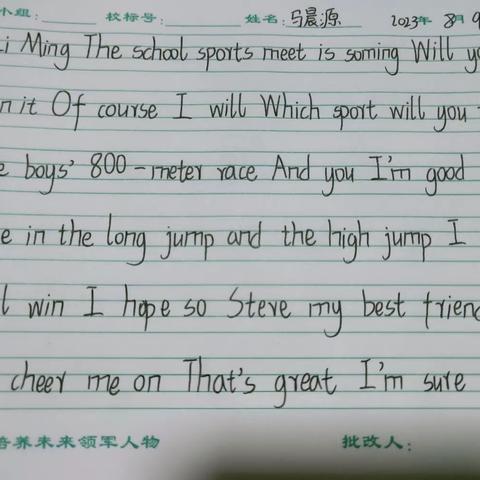 小组: 校标号: 姓名: 马晨源 2023年 8月 9
Li Ming The school sports meet is soming Will yo
in it Of course I will Which sport will you
e boys' 800-meter race And you I'm good
e in the long jump and the high jump I
l win I hope so Steve my best friend
cheer me on That's great I'm sure
培养未来领军人物 批改人: